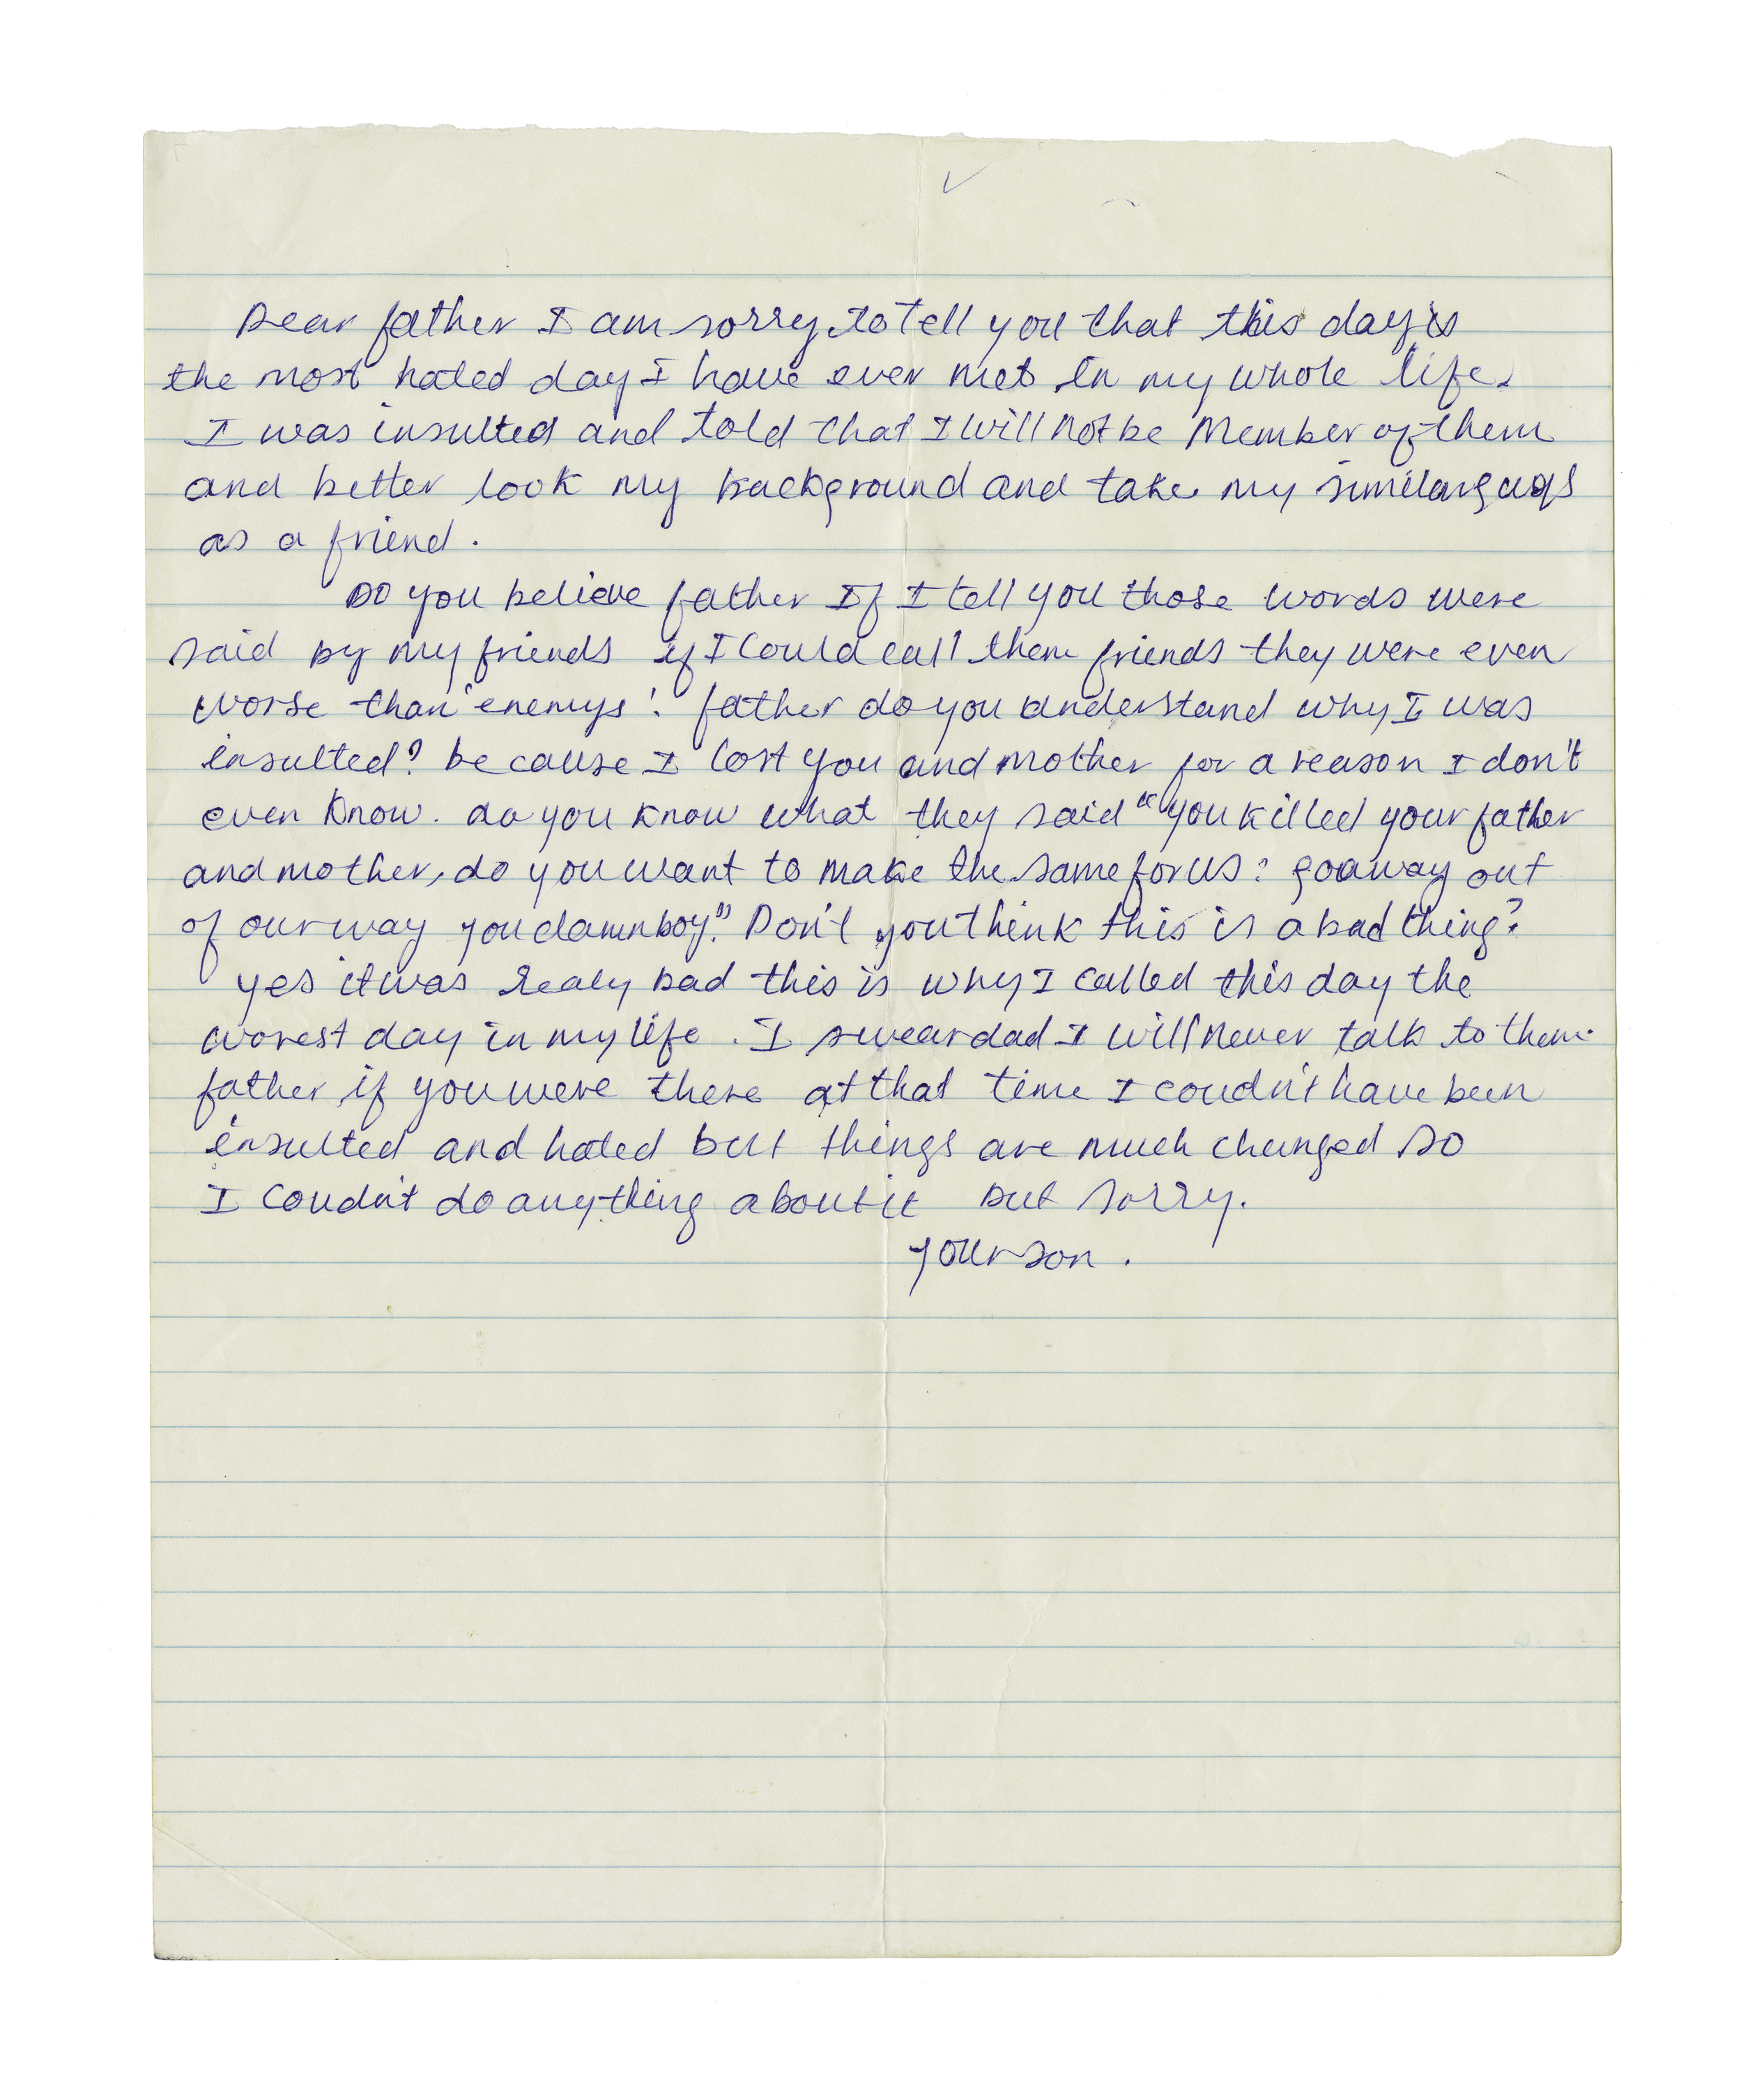 Dear father I am sorry to tell you that this day is
the most hated day I have ever met in my whole life.
I was insulted and told that I will not be Member of them
and better look my background and take my similar guys
as a friend.
Do you believe father If I tell you those words were
said by my friends if I could call them friends they were even
worse than "enemys". father do you understand why I was
insulted? because I lost you and mother for a reason I don't
even know. do you know what they said "you killed your father
and mother, do you want to make the same for us? go away out
of our way you damn boy." Don't you think this is a bad thing?
yes it was realy bad this is why I called this day the
worest day in my life. I swear dad I will never talk to them.
father if you were there at that time I coudn't have been
insulted and hated but things are much changed so
I coudn't do anything about it but sorry.
your son.